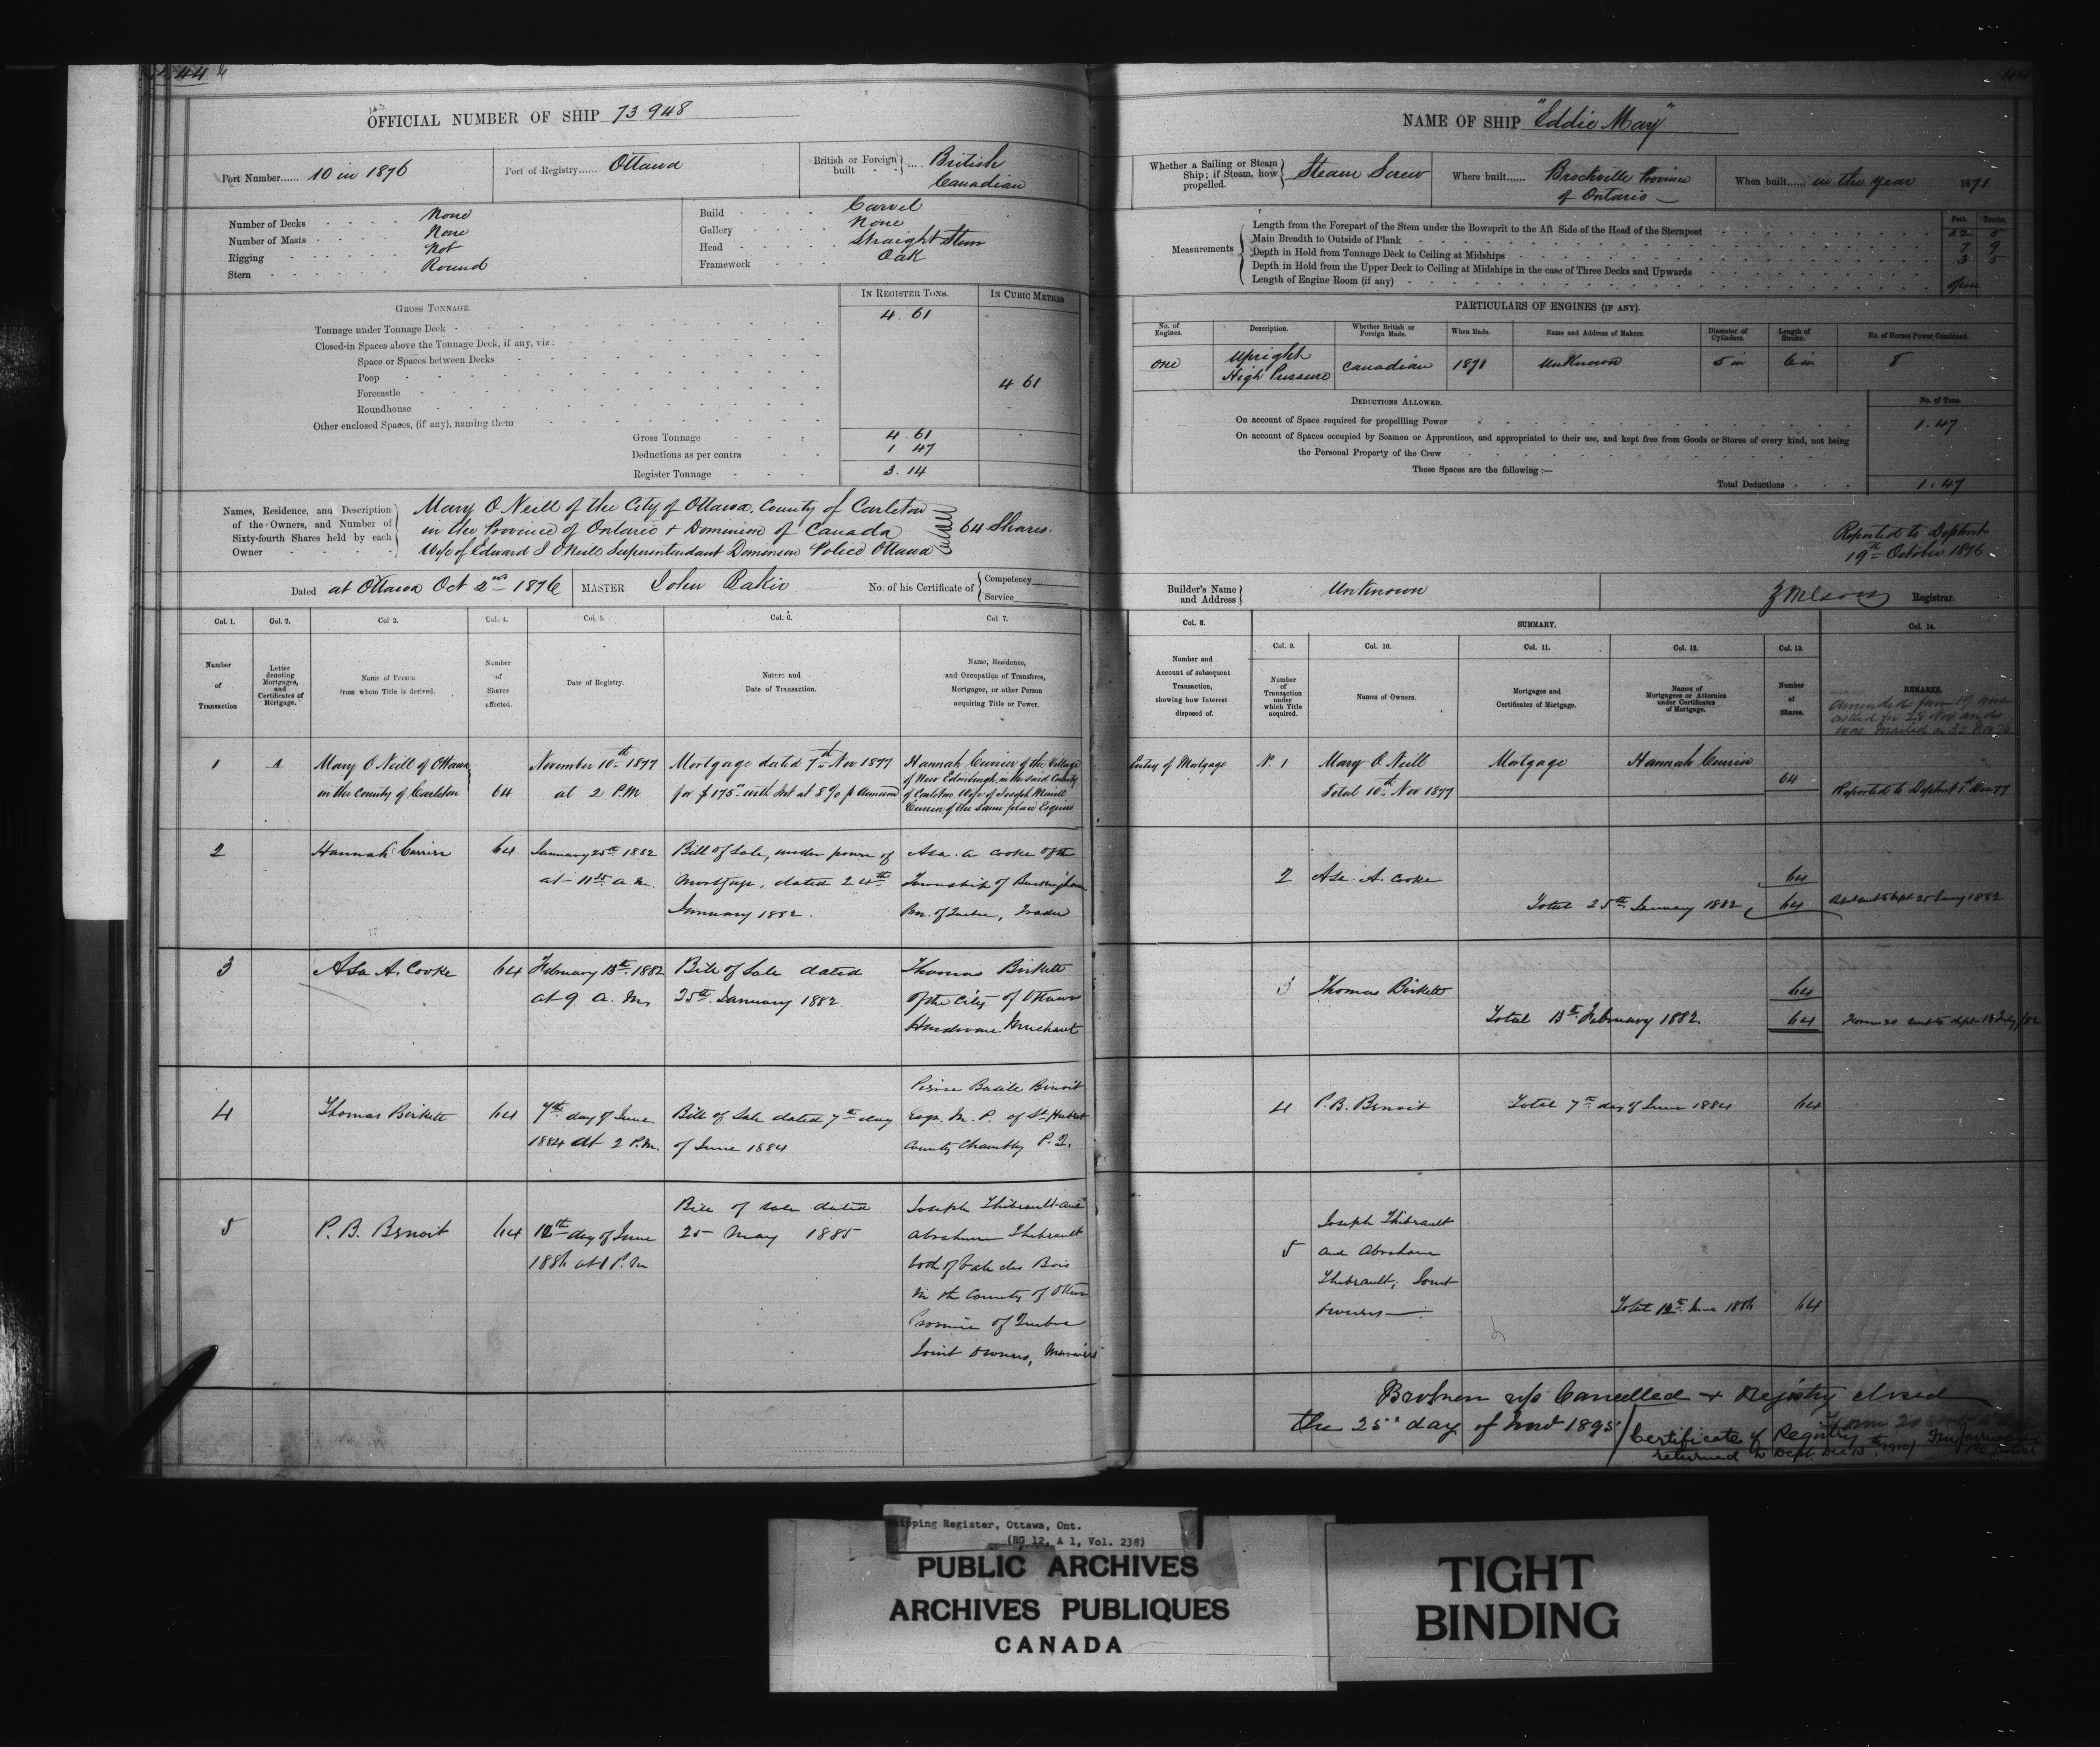 44
OFFICIAL NUMBER OF SHIP 73948
Port Number...... 10 in 1876
Port of Registry...... Ottawa
British or Foreign built .... British Canadian
Number of Decks None
Number of Masts None
Rigging Not
Stern Round
Build Carvel
Gallery None
Head Straight Stem
Framework Oak
GROSS TONNAGE.
IN REGISTER TONS.
IN CUBIC METRES
Tonnage under Tonnage Deck 4.61
Closed-in Spaces above the Tonnage Deck, if any, viz:
Space or Spaces between Decks
Poop
4.61
Forecastle
Roundhouse
Other enclosed Spaces, (if any), naming them
Gross Tonnage 4.61
Deductions as per contra 1 47
Register Tonnage 3.14
Names, Residence, and Description
of the Owners, and Number of
Sixty-fourth Shares held by each
Owner
Mary O Neill of the City of Ottawa, County of Carleton
in the Province of Ontario + Dominion of Canada
Wife of Edward J O'Neill Superintendant Dominion Police Ottawa
64 Shares.
Dated at Ottawa Oct 2nd 1876
MASTER John
No. of his Certificate of
Competency
Service
Col. 1.
Col. 2.
Col 3.
Col. 4.
Col. 5.
Col. 6.
Col 7.
Number
of
Transaction
Letter
denoting
Mortgages,
and
Certificates of
Mortgage.
Name of Person
from whom Title is derived.
Number
of
Shares
affected.
Date of Registry.
Nature and
Date of Transaction.
Name, Residence,
and Occupation of Transferee,
Mortgagee, or other Person
acquiring Title or Power.
1
Mary O Neill of Ottawa
in the County of Carleton
64
November 10th 1877
at 2 P.M
Mortgage dated 7th Nov 1877
for $175 with Int at 8 % p annum
Hannah Currier of the Village
of New Edinburgh, in the said County
of Carleton Wife of Joseph Merrill
Currier of the same place Esquire
2
Hannah Currier
64
January 25th 1882
at 11 a.m.
Bill of Sale, under power of
Mortgage, dated 24th
January 1882.
Asa. A Cooke of the
Township of Buckingham
Pro. of Quebec, Trader
3
Asa A. Cooke
64
February 13th 1882
at 9 a. m.
Bill of Sale dated
25th January 1882.
Thomas Birkett
of the City of Ottawa
Hardware Merchant
4
Thomas Birkett
64
7th day of June
1884 at 2 P.M.
Bill of Sale dated 7th day
of June 1884
Pierre Basile Benoit
Esqr. M. P. of St. Hubert
County Chambly P.Q.
5
P. B. Benoit
64
12th day of June
1886 at 1 P.M
Bill of sale dated
25 May 1885
Joseph Thibeault and
Abraham Thibeault
both of Val des Bois
in the County of Ottawa
Province of Quebec
Joint Owners, Mariners
NAME OF SHIP "Eddie May"
Whether a Sailing or Steam
Ship; if Steam, how
propelled.
Steam Screw
Where built...... Brockville Province
of Ontario
When built...... in the year 1871
Measurements
Feet. Tenths.
Length from the Forepart of the Stem under the Bowsprit to the Aft Side of the Head of the Sternpost 32 5
Main Breadth to Outside of Plank 7 9
Depth in Hold from Tonnage Deck to Ceiling at Midships 3 5
Depth in Hold from the Upper Deck to Ceiling at Midships in the case of Three Decks and Upwards
Length of Engine Room (if any) Open
PARTICULARS OF ENGINES (IF ANY).
No. of
Engines.
Description.
Whether British or
Foreign Made.
When Made.
Name and Address of Makers.
Diameter of
Cylinders.
Length of
Stroke.
No. of Horses Power Combined.
one
Upright
High Pressure
Canadian
1871
Unknown
5 in
6 in
8
DEDUCTIONS ALLOWED.
No. of Tons.
On account of Space required for propelling Power 1.47
On account of Spaces occupied by Seamen or Apprentices, and appropriated to their use, and kept free from Goods or Stores of every kind, not being
the Personal Property of the Crew
These Spaces are the following :—
Total Deductions 1.47
Reported to Deptmt
19th October 1876
Builder's Name
and Address
Unknown
Registrar.
Col. 8.
SUMMARY.
Col. 14.
Col. 9.
Col. 10.
Col. 11.
Col. 12.
Col. 13.
Number and
Account of subsequent
Transaction,
showing how Interest
disposed of.
Number
of
Transaction
under
which Title
acquired.
Names of Owners.
Mortgages and
Certificates of Mortgage.
Names of
Mortgagees or Attornies
under Certificates
of Mortgage.
Number
of
Shares.
REMARKS.
Entry of Mortgage
No. 1
Mary O Neill
Total 10th Nov 1877
Mortgage
Hannah Currier
64
Reported to Deptmt 1st Dec 77
2
Asa. A. Cooke
64
Total 25th January 1882
64
3
Thomas Birkett
64
Total 13th February 1882
64
4
P. B. Benoit
Total 7th day of June 1884
64
5
Joseph Thibeault
and Abraham
Thibeault, Joint
owners
Total 12th June 1886
64
Cancelled + Registry closed
the 25th day of Novr 1895
Certificate of Registry
returned to Dept. Dec 13th
Shipping Register, Ottawa, Ont.
(RG 12, A 1, Vol. 238)
PUBLIC ARCHIVES
ARCHIVES PUBLIQUES
CANADA
TIGHT
BINDING